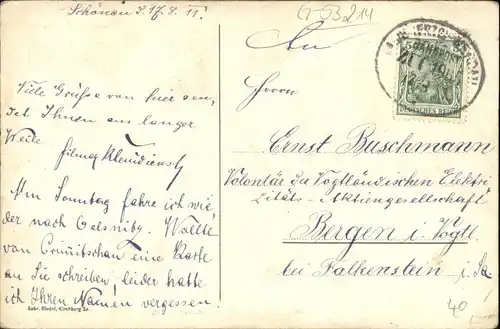 Schönau d. 17.8.11.
G-53214
An
DEUTSCHES REICH
Viele Grüsse von hier sen-
det Ihnen aus langer
Weile
Ernst Büschmann
Volontär der Vogtländischen Elektri
zitäts-Aktiengesellschaft
Bergen i. Vogtl.
bei Falkenstein i. Sa.
Am Sonntag fahre ich wie-
der nach Oelsnitz. Wollte
von Crimitschau eine Karte
an Sie schreiben, leider hatte
ich Ihren Namen vergessen.
Gebr. Riedel, Kirchberg Sa.
40